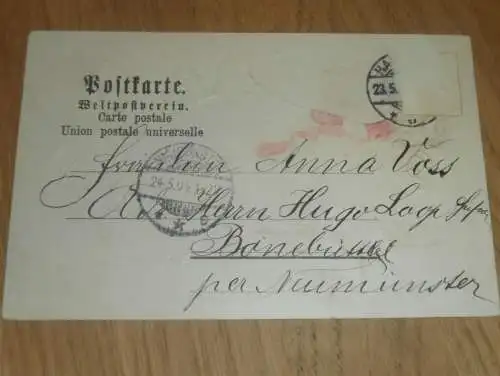 Postkarte.
Weltpostverein.
Carte postale
Union postale universelle
23.5.
24.5.04
Fräulein Anna Voss
Hern Hugo Loop Hufner
Bönebüttel
per Neumünster